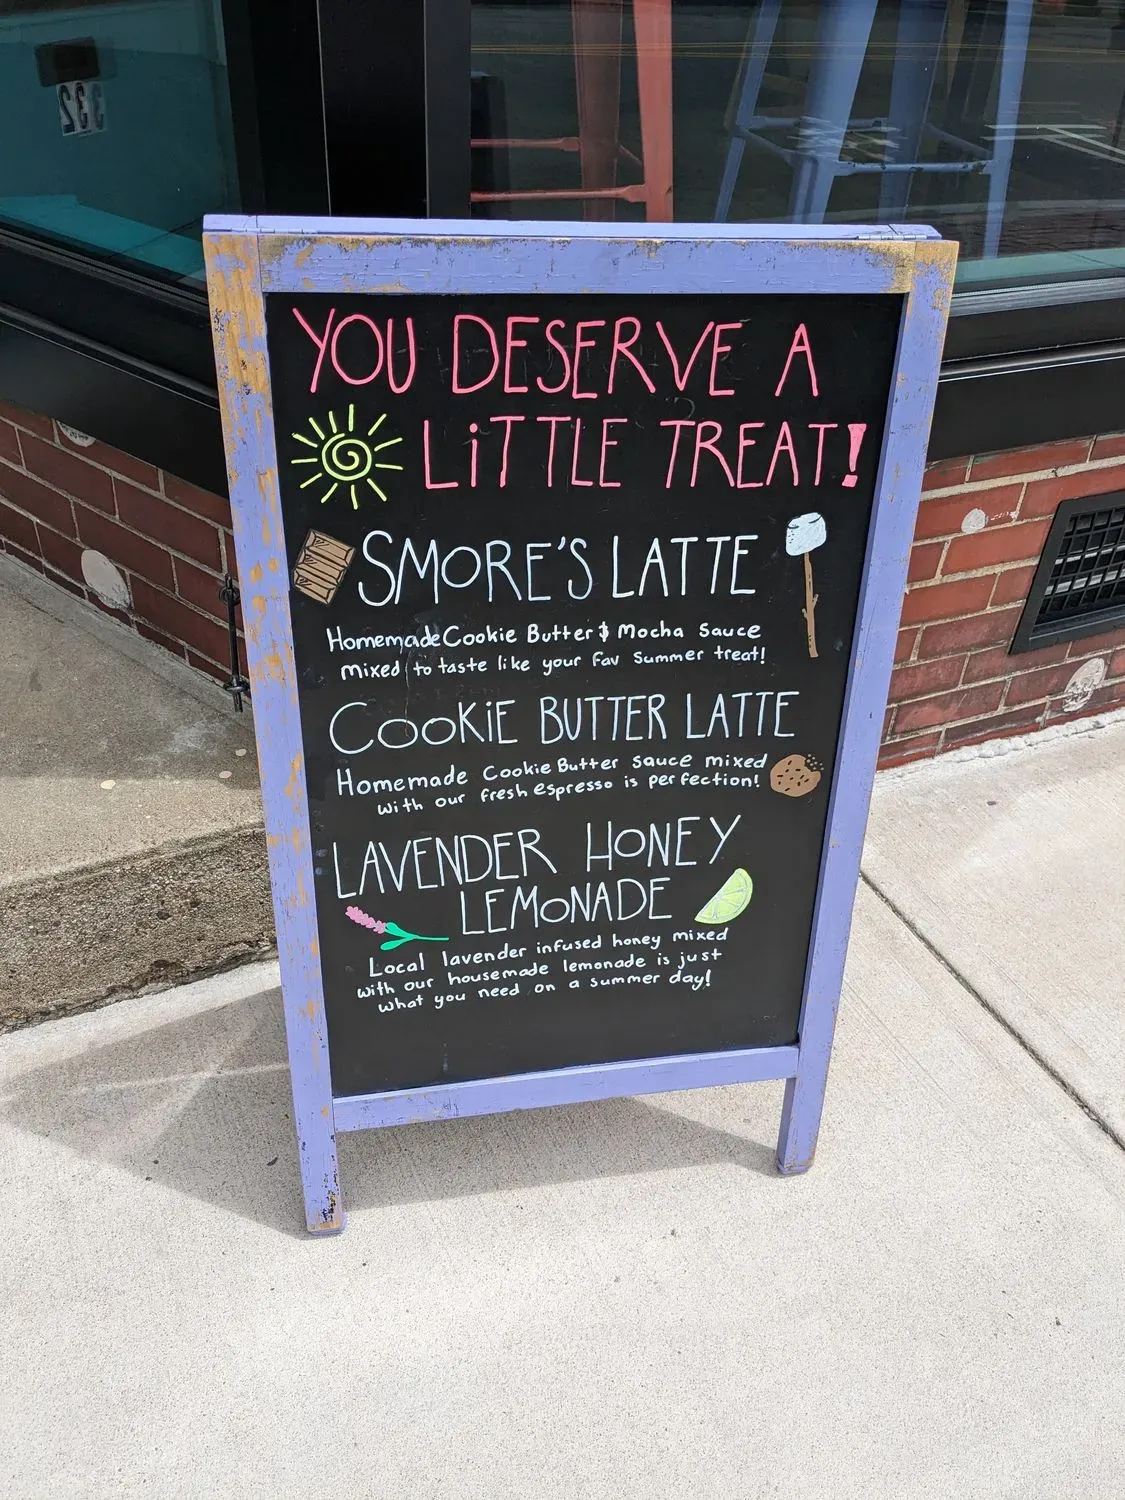 332
YOU DESERVE A
LiTTLE TREAT!
SMORE'S LATTE
Homemade Cookie Butter & Mocha Sauce
mixed to taste like your fav summer treat!
COOKiE BUTTER LATTE
Homemade Cookie Butter sauce mixed
with our fresh espresso is perfection!
LAVENDER HONEY
LEMONADE
Local lavender infused honey mixed
with our housemade lemonade is just
what you need on a summer day!